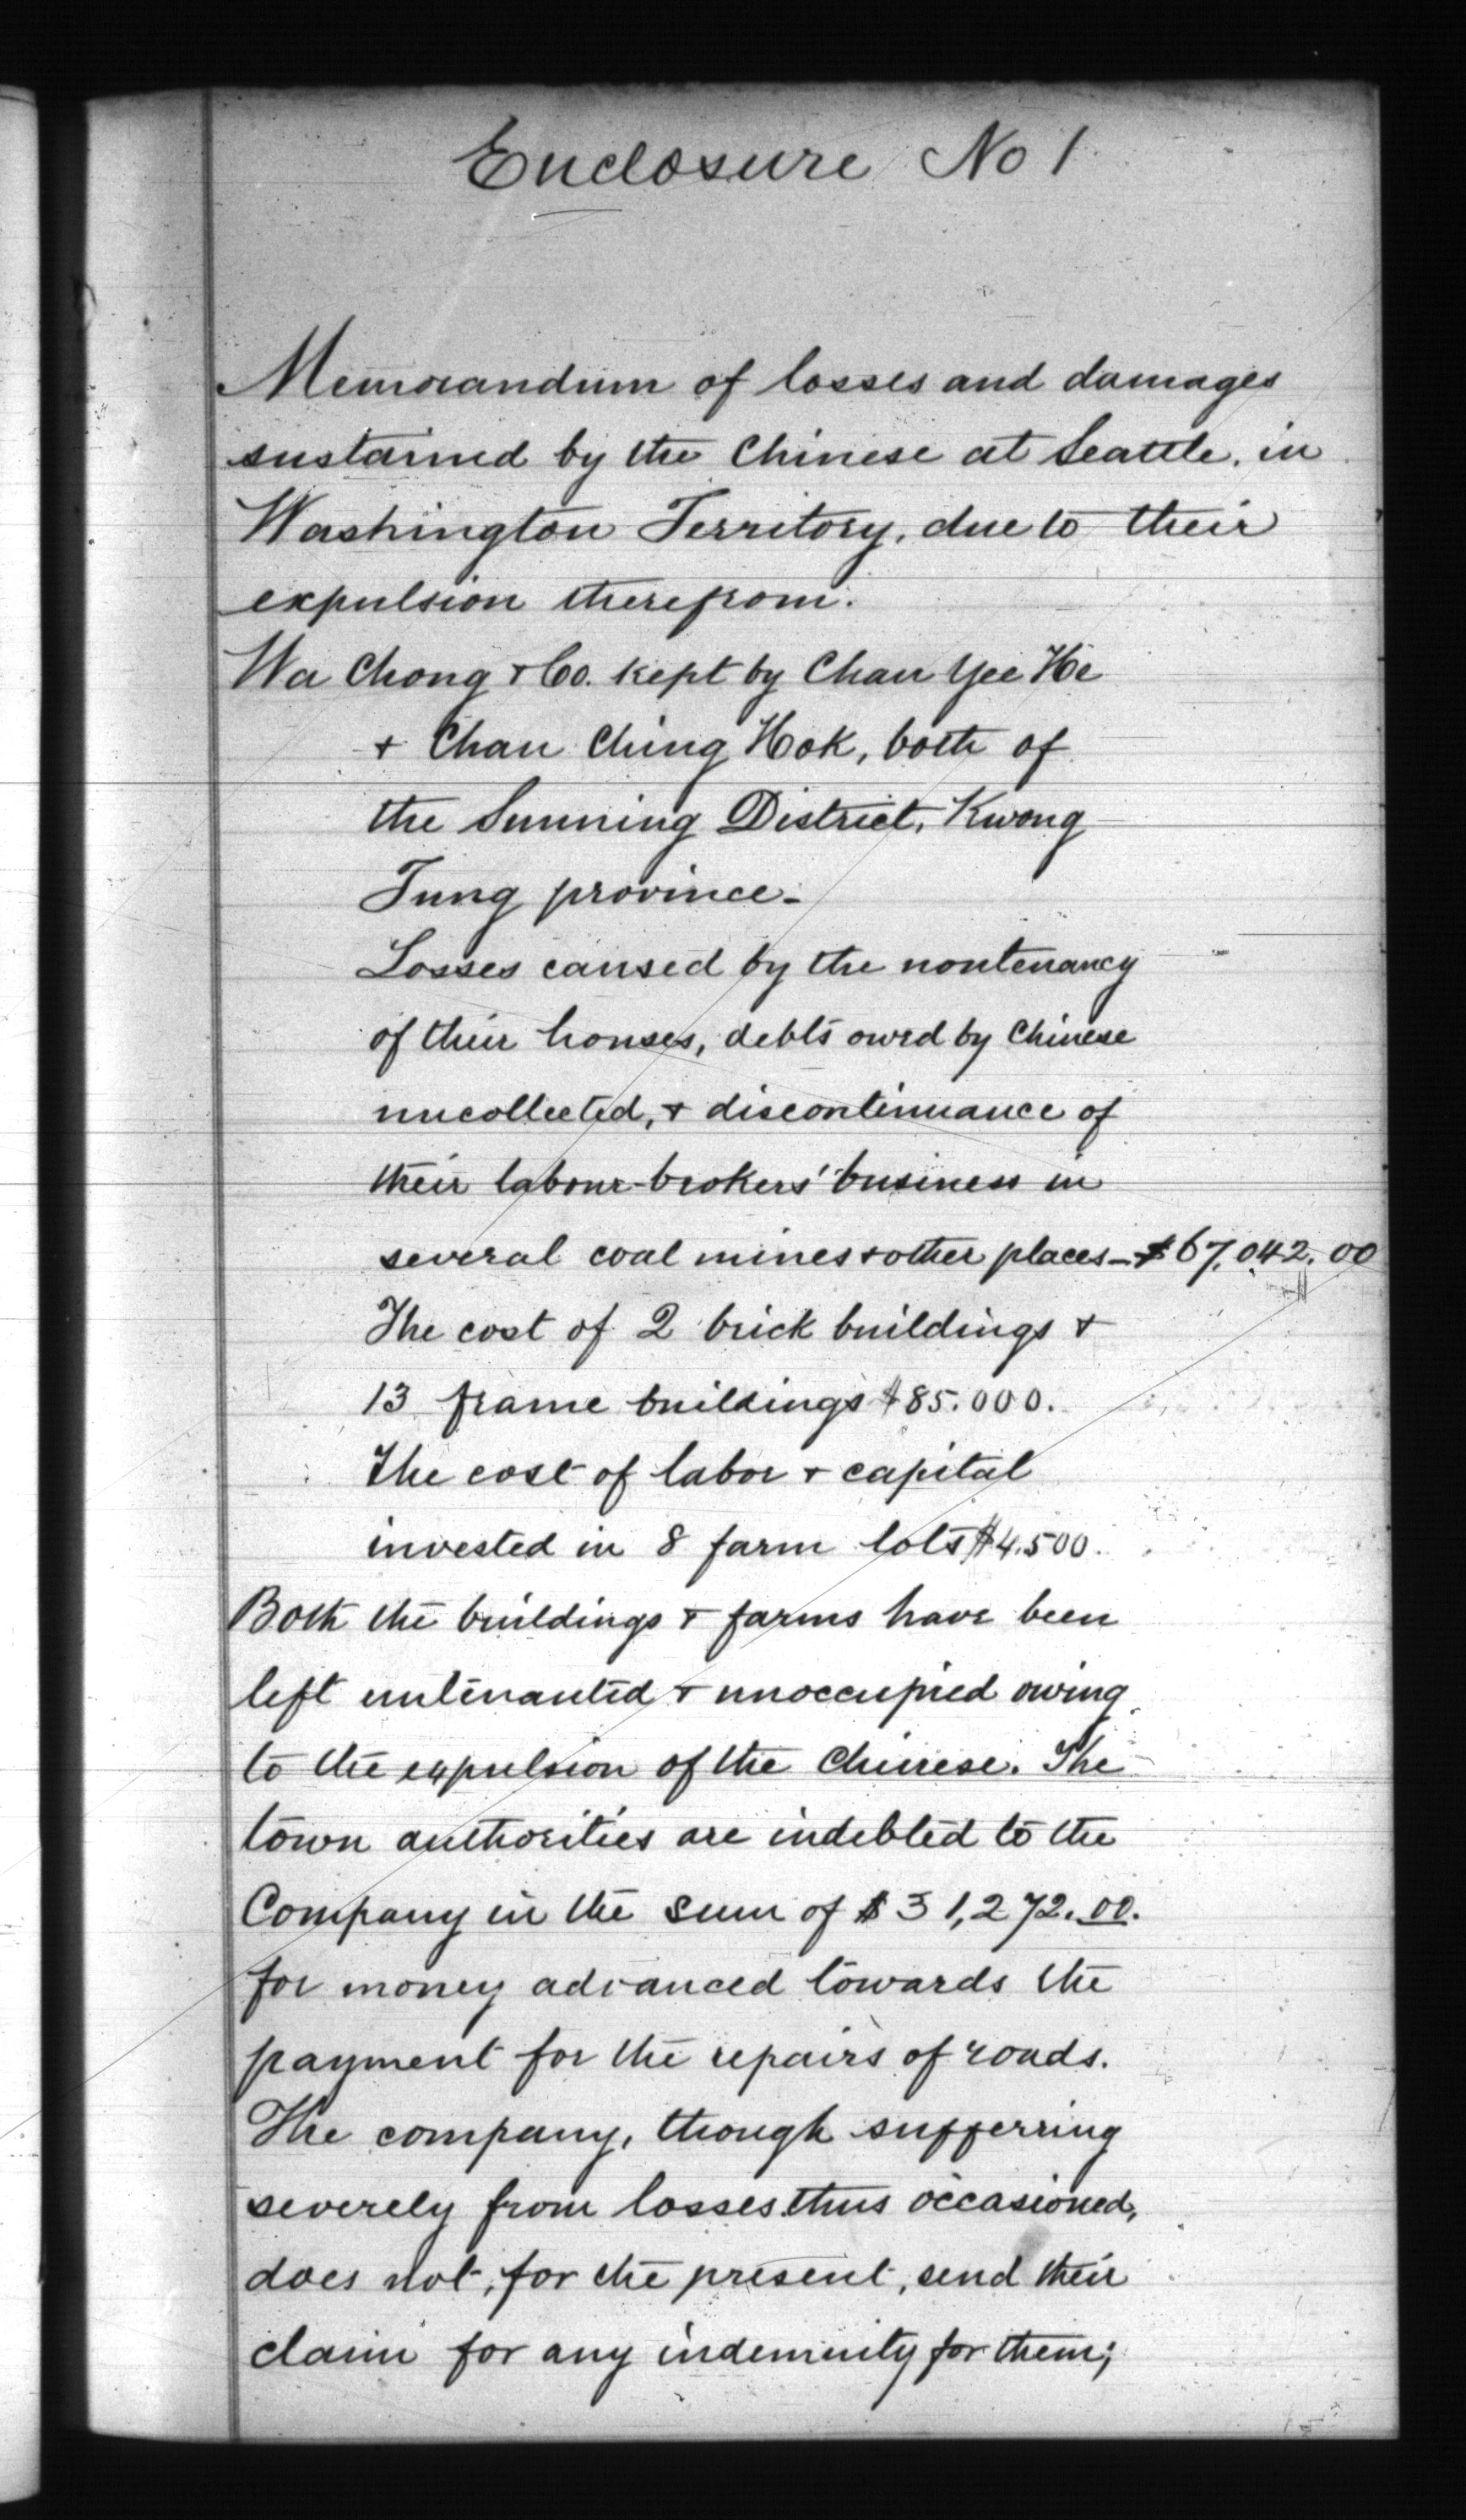 Enclosure No 1
Memorandum of losses and damages
sustained by the Chinese at Seattle, in
Washington Territory, due to their
expulsion therefrom.
Wa Chong & Co. kept by Chan Yee He
& Chan Ching Hok, both of
the Sunning District, Kwong
Tung province.
Losses caused by the nontenancy
of their houses, debts owed by Chinese
uncollected, & discontinuance of
their labour-brokers' business in
several coal mines & other places - $67,042.00
The cost of 2 brick buildings &
13 frame buildings $85.000.
The cost of labor & capital
invested in 8 farm lots $4.500.
Both the buildings & farms have been
left untenanted & unoccupied owing
to the expulsion of the Chinese. The
town authorities are indebted to the
Company in the sum of $31,272.00.
for money advanced towards the
payment for the repairs of roads.
The company, though sufferring
severely from losses thus occasioned,
does not, for the present, send their
claim for any indemnity for them;